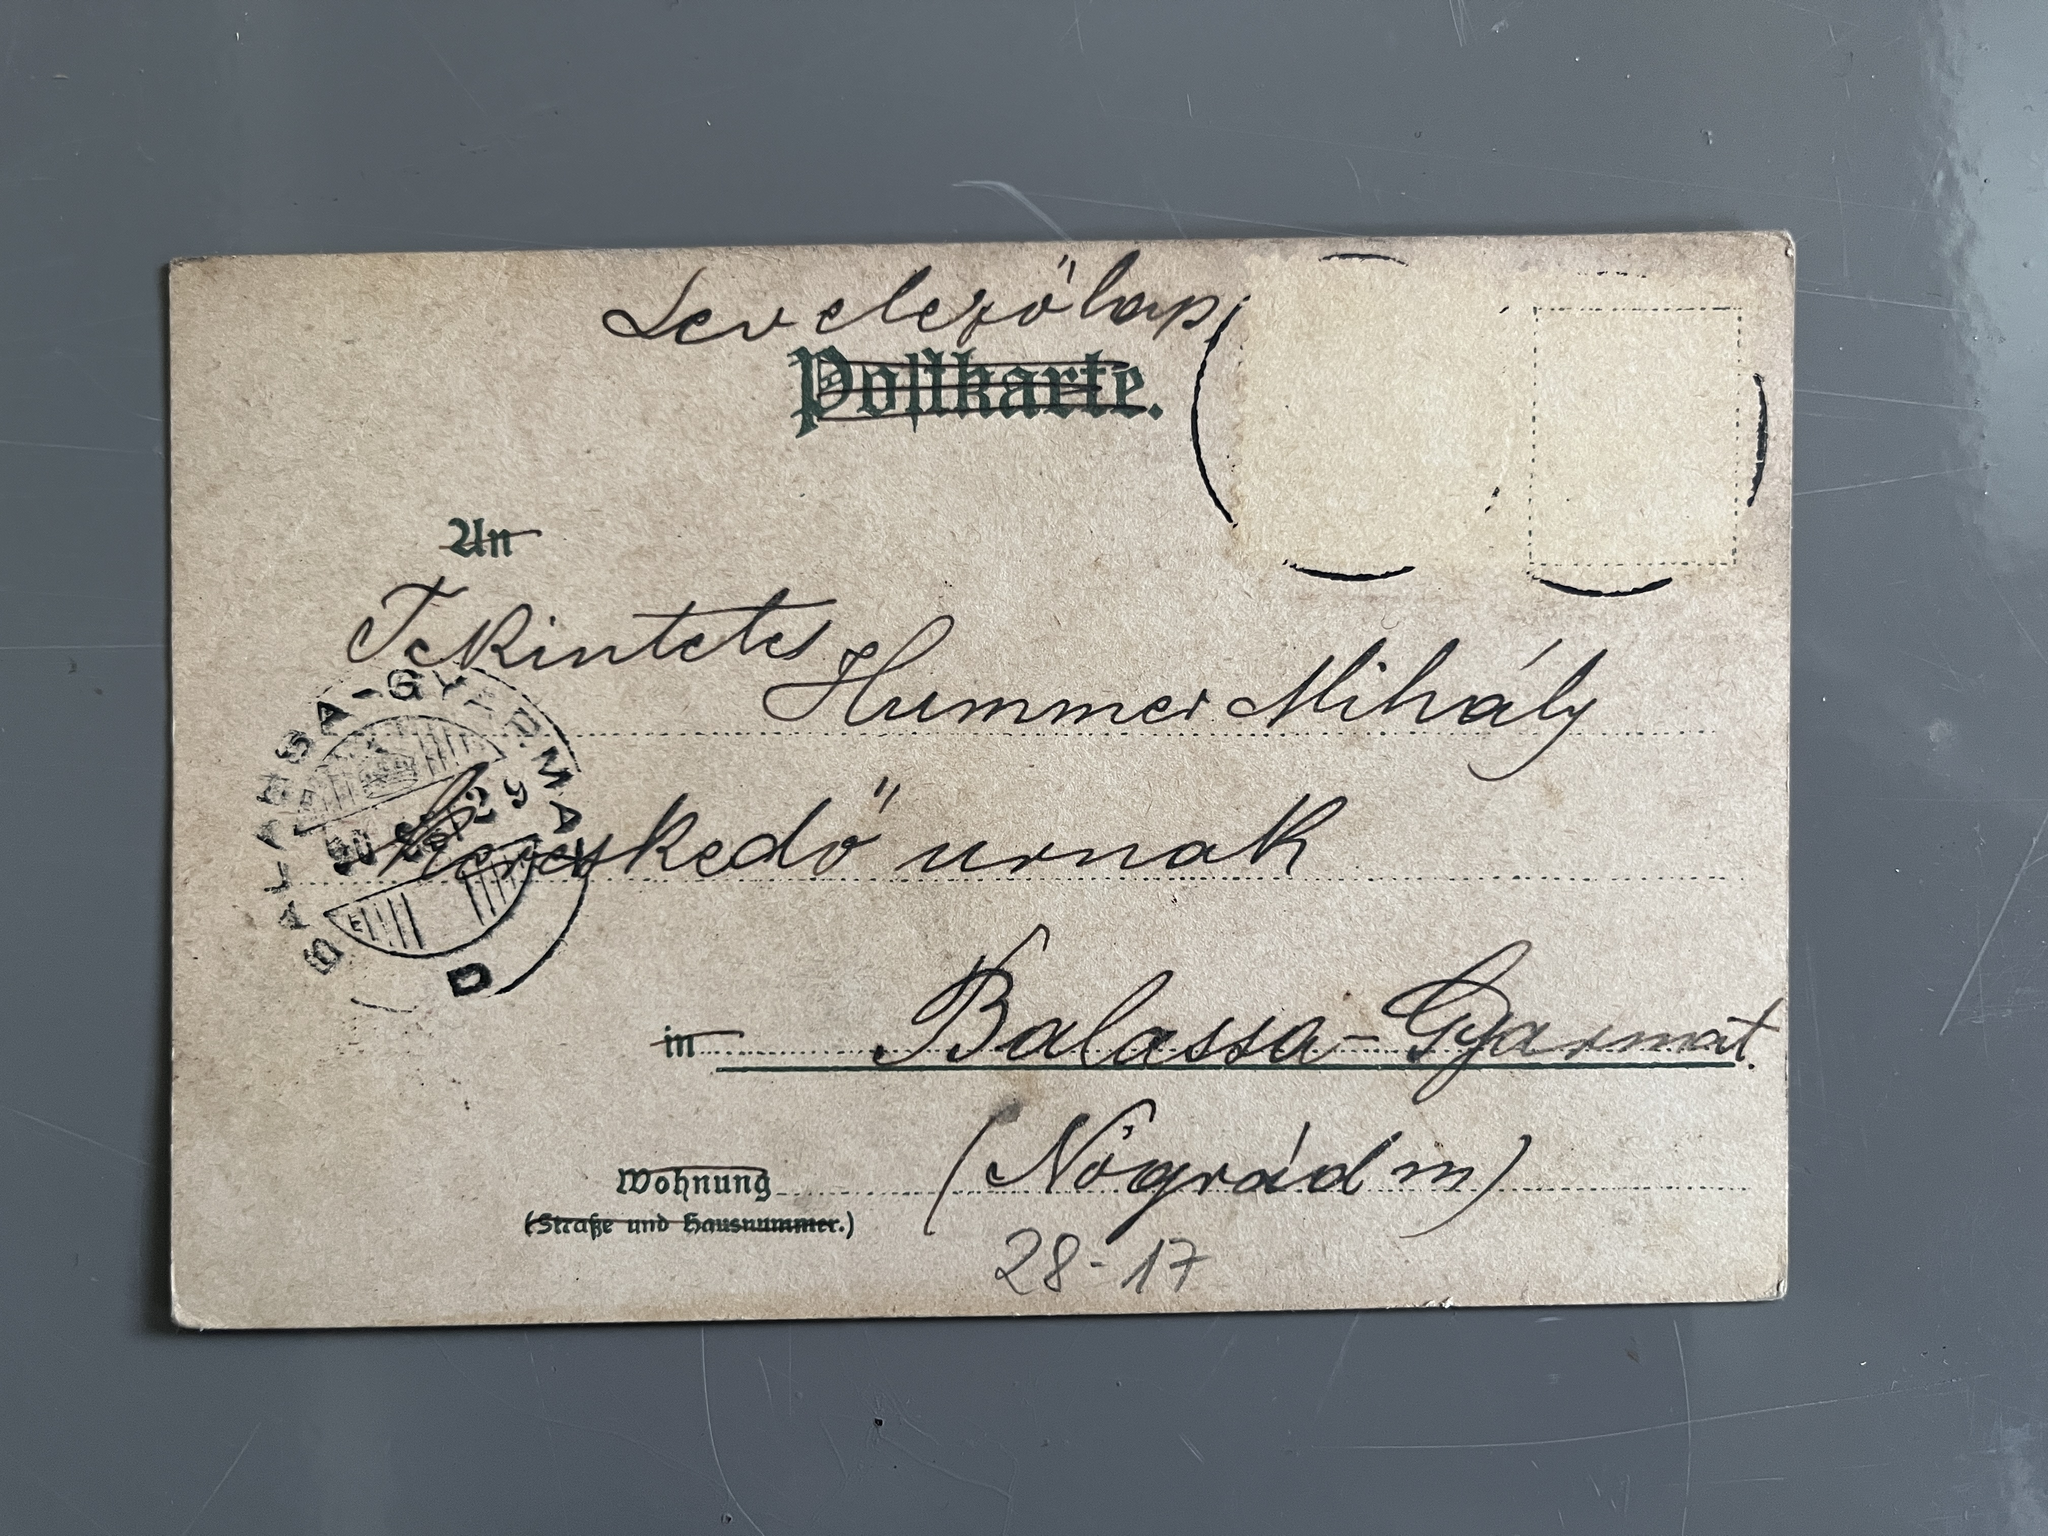 Levelezőlap
Postkarte.
An
Tekintetes
Hummer Mihály
Kereskedő urnak
in Balassa-Gyarmat.
Wohnung (Nógrád m)
(Straße und Hausnummer.)
28-17
BALASSA-GYARMAT
D